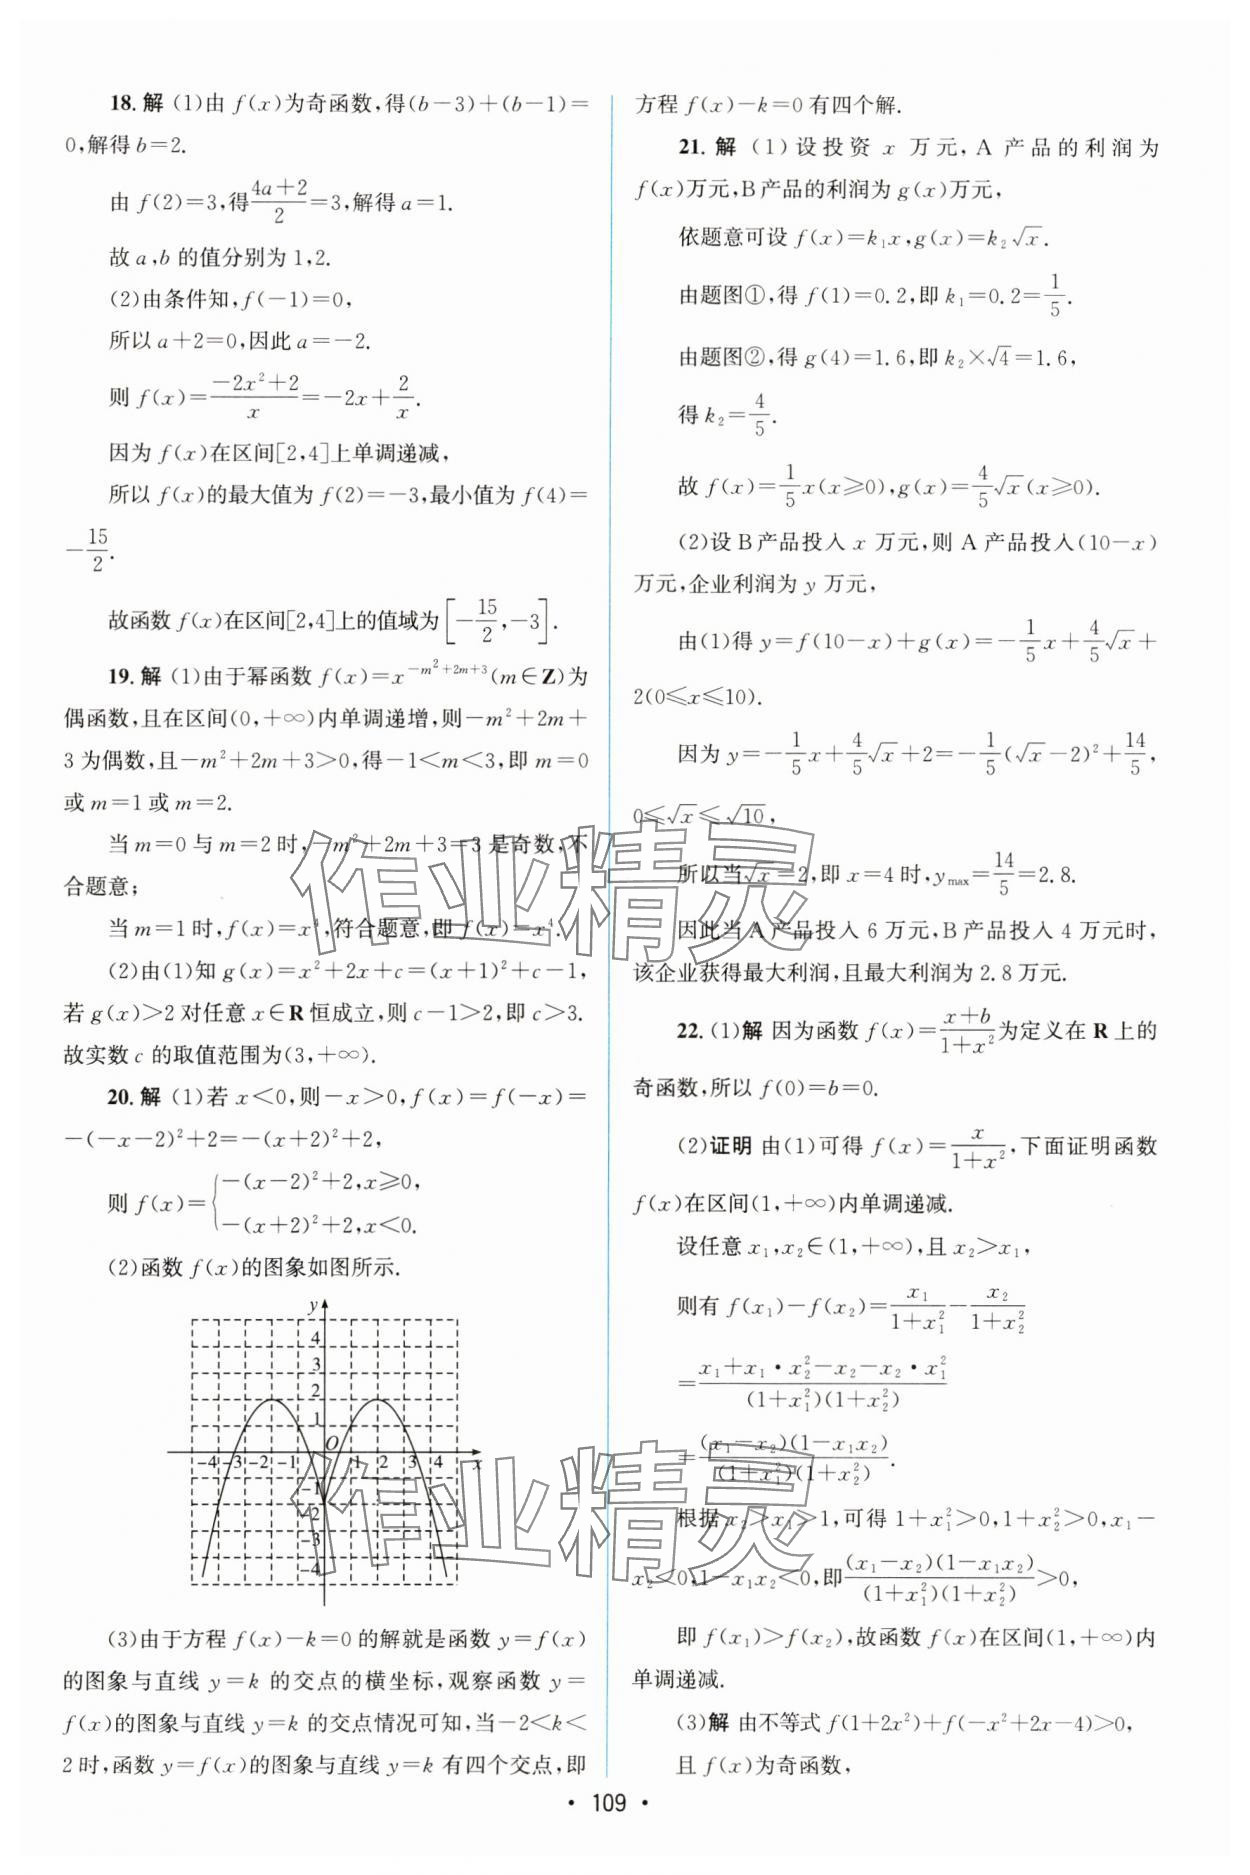 18. 解 (1)由 f(x)为奇函数,得(b-3)+(b-1)=
0,解得 b=2.
由 f(2)=3,得\frac{4a+2}{2}=3,解得 a=1.
故 a,b 的值分别为 1,2.
(2)由条件知,f(-1)=0,
所以 a+2=0,因此 a=-2.
则 f(x)=\frac{-2x²+2}{x}=-2x+\frac{2}{x}.
因为 f(x)在区间[2,4]上单调递减,
所以 f(x)的最大值为 f(2)=-3,最小值为 f(4)=
-\frac{15}{2}.
故函数 f(x)在区间[2,4]上的值域为[-\frac{15}{2},-3].
19. 解 (1)由于幂函数 f(x)=x^{-m²+2m+3}(m∈Z)为
偶函数,且在区间(0,+∞)内单调递增,则-m²+2m+
3 为偶数,且-m²+2m+3>0,得-1<m<3,即 m=0
或 m=1 或 m=2.
当 m=0 与 m=2 时,-m²+2m+3=3 是奇数,不
合题意;
当 m=1 时,f(x)=x⁴,符合题意,即 f(x)=x⁴.
(2)由(1)知 g(x)=x²+2x+c=(x+1)²+c-1,
若 g(x)>2 对任意 x∈R 恒成立,则 c-1>2,即 c>3.
故实数 c 的取值范围为(3,+∞).
20. 解 (1)若 x<0,则-x>0,f(x)=f(-x)=
-(-x-2)²+2=-(x+2)²+2,
则 f(x)={-(x-2)²+2,x≥0,
-(x+2)²+2,x<0.
(2)函数 f(x)的图象如图所示.
y
4
3
2
1
O
-4 -3 -2 -1 1 2 3 4 x
-1
-2
-3
-4
(3)由于方程 f(x)-k=0 的解就是函数 y=f(x)
的图象与直线 y=k 的交点的横坐标,观察函数 y=
f(x)的图象与直线 y=k 的交点情况可知,当-2<k<
2 时,函数 y=f(x)的图象与直线 y=k 有四个交点,即
方程 f(x)-k=0 有四个解.
21. 解 (1)设投资 x 万元,A 产品的利润为
f(x)万元,B 产品的利润为 g(x)万元,
依题意可设 f(x)=k₁x,g(x)=k₂√x.
由题图①,得 f(1)=0.2,即 k₁=0.2=\frac{1}{5}.
由题图②,得 g(4)=1.6,即 k₂×√4=1.6,
得 k₂=\frac{4}{5}.
故 f(x)=\frac{1}{5}x(x≥0),g(x)=\frac{4}{5}√x(x≥0).
(2)设 B 产品投入 x 万元,则 A 产品投入(10-x)
万元,企业利润为 y 万元,
由(1)得 y=f(10-x)+g(x)=-\frac{1}{5}x+\frac{4}{5}√x+
2(0≤x≤10).
因为 y=-\frac{1}{5}x+\frac{4}{5}√x+2=-\frac{1}{5}(√x-2)²+\frac{14}{5},
0≤√x≤√10,
所以当√x=2,即 x=4 时,y_{max}=\frac{14}{5}=2.8.
因此当 A 产品投入 6 万元,B 产品投入 4 万元时,
该企业获得最大利润,且最大利润为 2.8 万元.
22. (1)解 因为函数 f(x)=\frac{x+b}{1+x²}为定义在 R 上的
奇函数,所以 f(0)=b=0.
(2)证明 由(1)可得 f(x)=\frac{x}{1+x²},下面证明函数
f(x)在区间(1,+∞)内单调递减.
设任意 x₁,x₂∈(1,+∞),且 x₂>x₁,
则有 f(x₁)-f(x₂)=\frac{x₁}{1+x₁²}-\frac{x₂}{1+x₂²}
=\frac{x₁+x₁·x₂²-x₂-x₂·x₁²}{(1+x₁²)(1+x₂²)}
=\frac{(x₁-x₂)(1-x₁x₂)}{(1+x₁²)(1+x₂²)}.
根据 x₂>x₁>1,可得 1+x₁²>0,1+x₂²>0,x₁-
x₂<0,1-x₁x₂<0,即\frac{(x₁-x₂)(1-x₁x₂)}{(1+x₁²)(1+x₂²)}>0,
即 f(x₁)>f(x₂),故函数 f(x)在区间(1,+∞)内
单调递减.
(3)解 由不等式 f(1+2x²)+f(-x²+2x-4)>0,
且 f(x)为奇函数,
作业精灵
作业精灵
· 109 ·